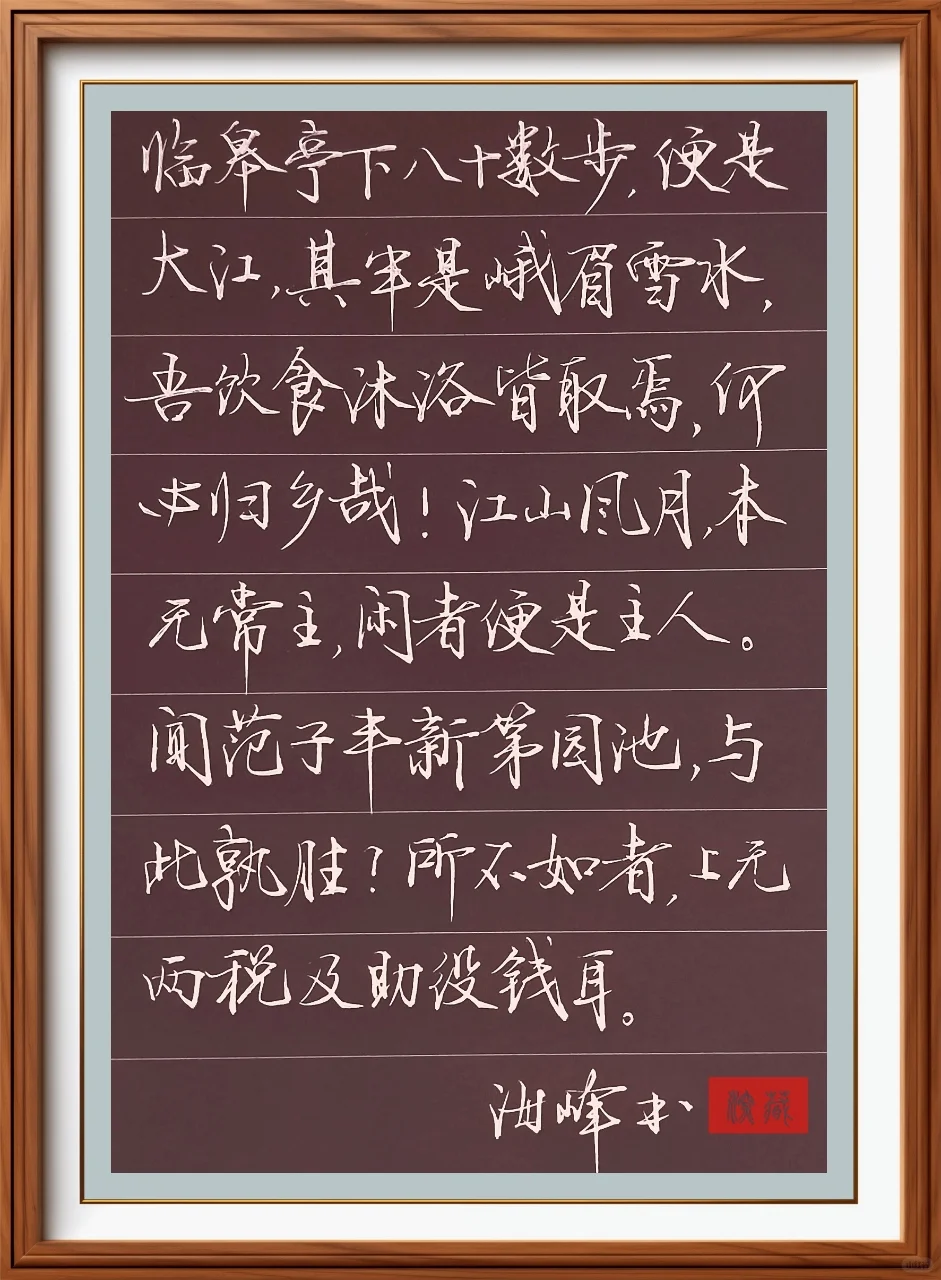 临皋亭下八十数步,便是
大江,其半是峨眉雪水,
吾饮食沐浴皆取焉,何
必归乡哉!江山风月,本
无常主,闲者便是主人。
闻范子丰新第园池,与
此孰胜?所不如者,上无
两税及助役钱耳。
峰书